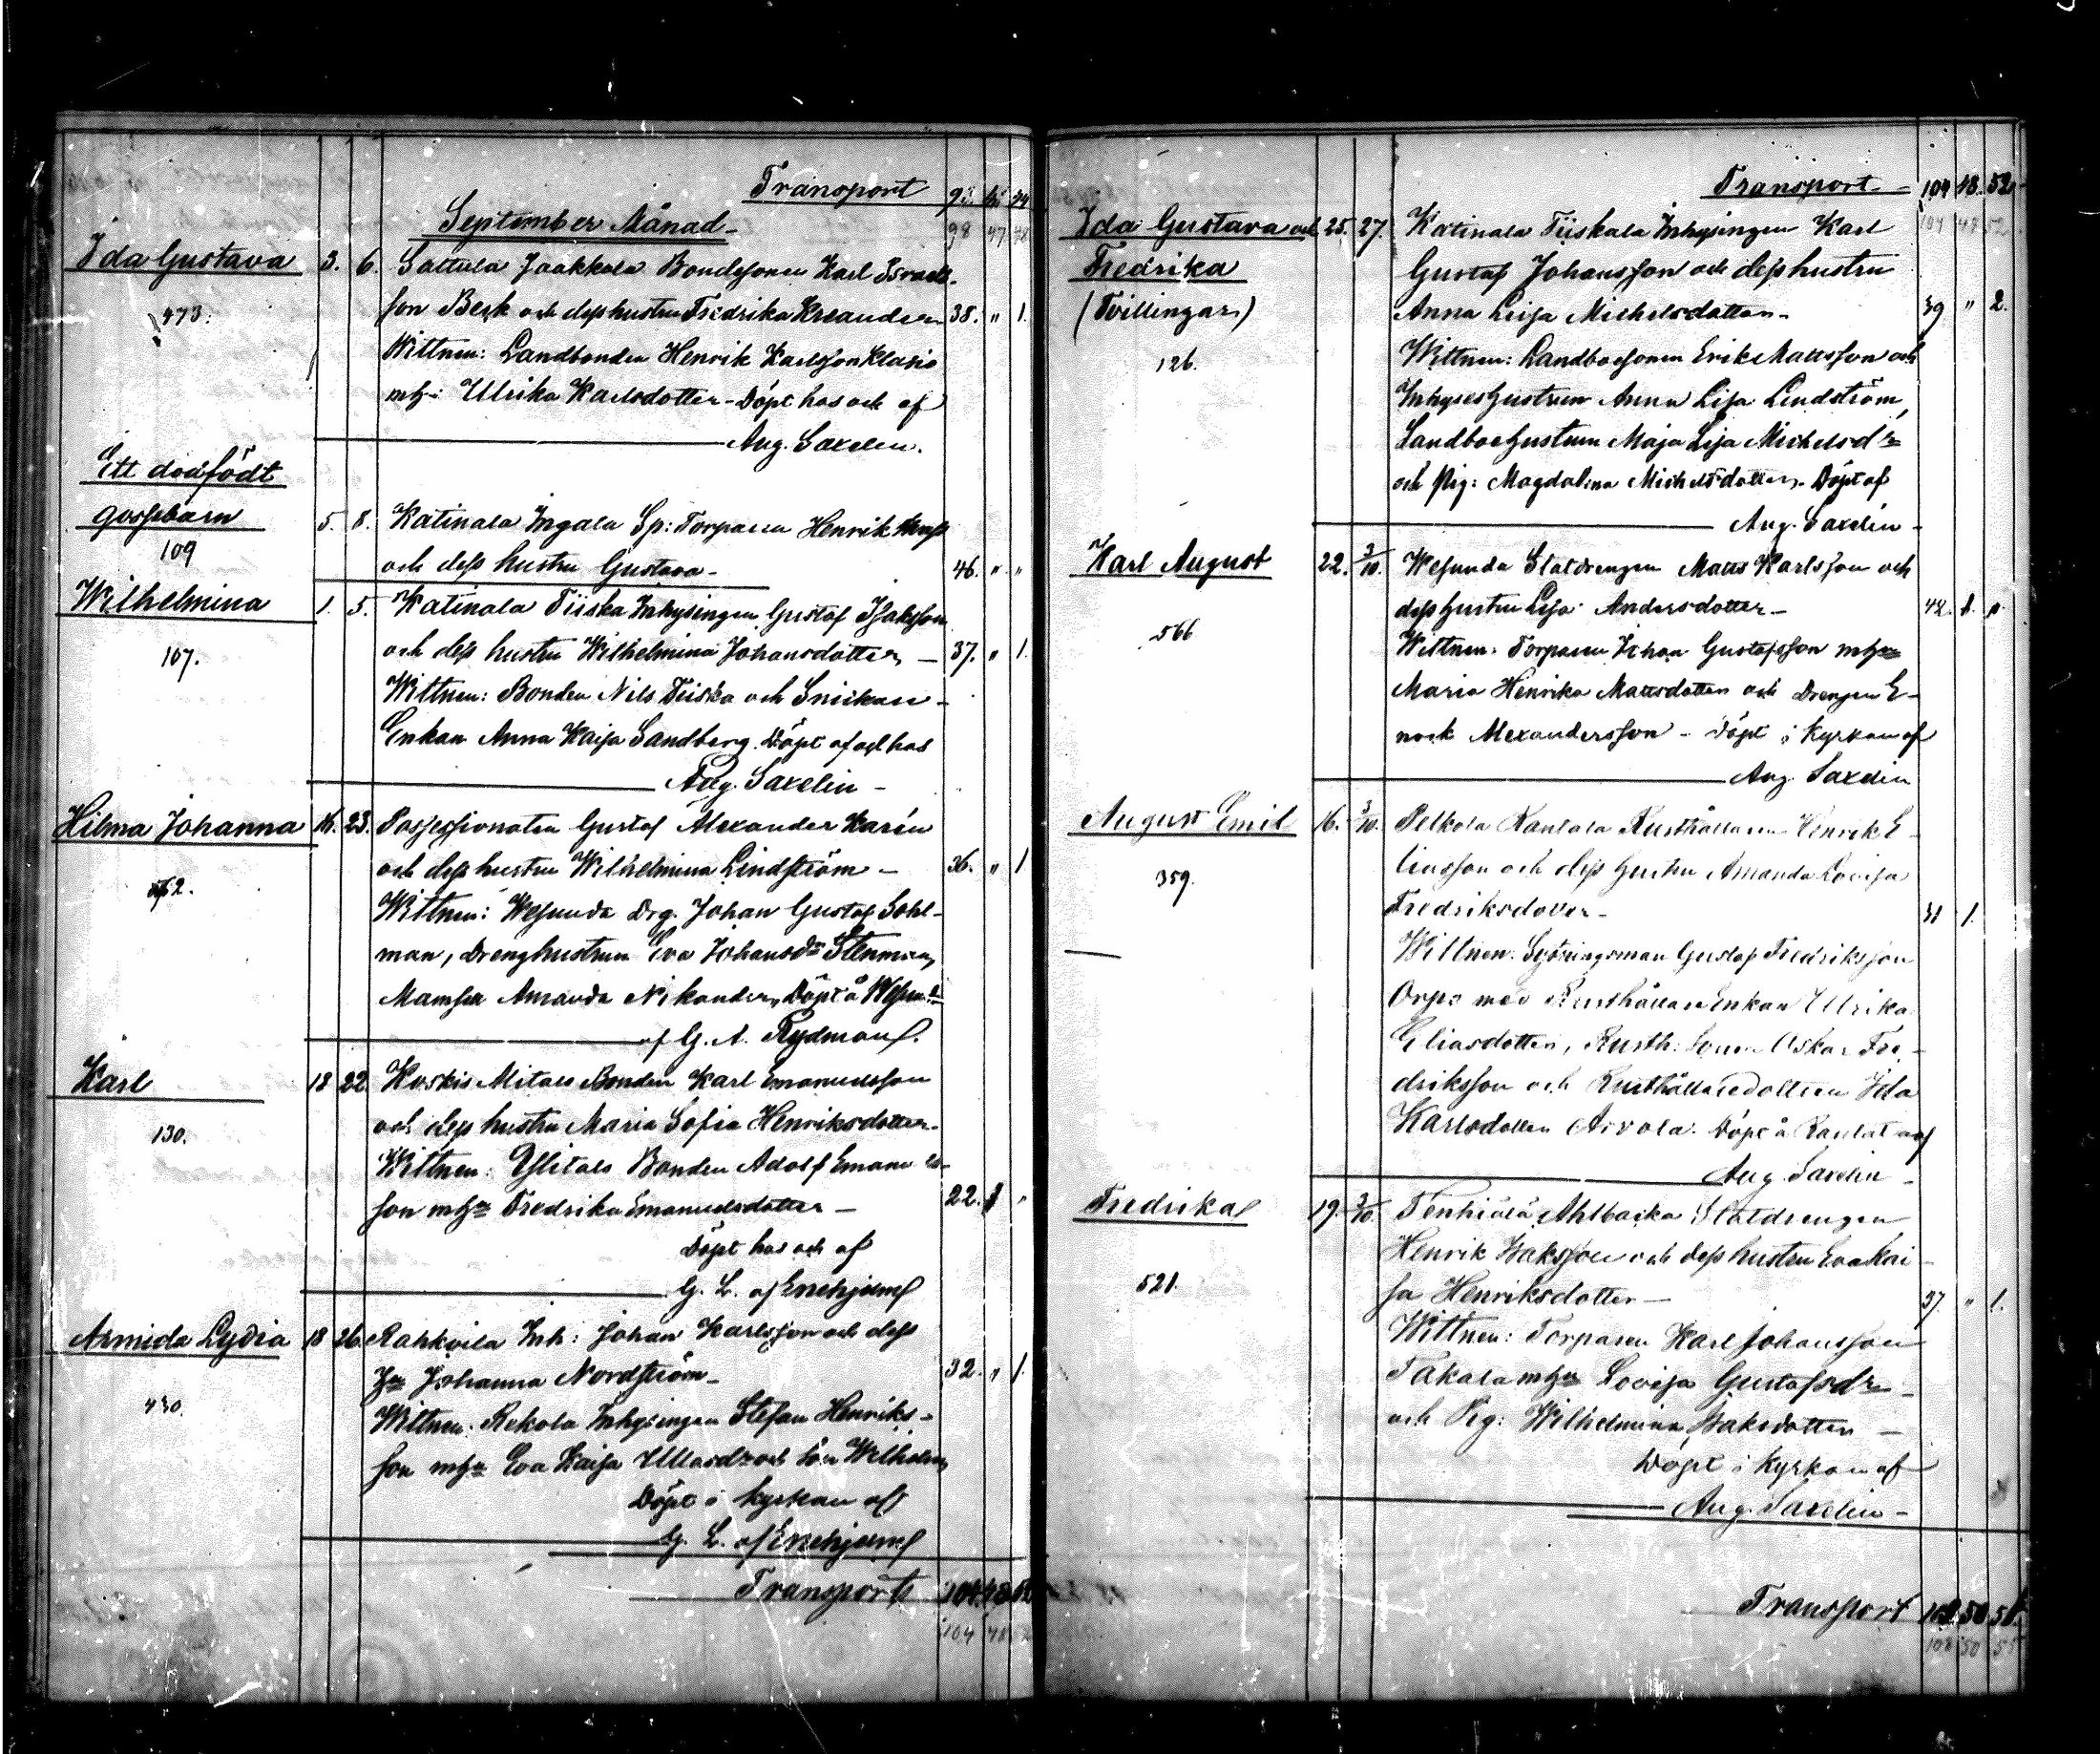 Transport 98. 47 48
September Månad
98 47 48
Ida Gustava 3. 6. Sattula Jaakkola Bondesonen Karl Israels-
473. son Berk och dess hustru Fredrika Kreander 38. " 1.
Wittnen: Landbonden Henrik Karlsson
mh: Ulrika Karlsdotter - Döpt hos och af
Aug. Saxelin.
Ett dödfödt
gossebarn 5. 8. Katinala Ingala Sp: Torparen Henrik
109 och dess hustru Gustava - 46. " "
Wilhelmina 1. 5. Katinala Tiiska Inhysingen Gustaf Isaksson
107. och dess hustru Wilhelmina Johansdotter - 37. " 1.
Wittnen: Bonden Nils Tiiska och Snickare-
Enkan Anna Kaisa Sandberg. Döpt af och hos
Aug. Saxelin -
Hilma Johanna 16. 23. Possessionaten Gustaf Alexander Karén
och dess hustru Wilhelmina Lindström - 36. " 1
Wittnen: Wesunda Drg. Johan Gustaf Sohl-
man, Drenghustrun Eva Johansdr Stenman,
Mamsell Amanda Nikander, Döpt å
af G. A. Rydman.
Karl 18 22. Koskis Mitals Bonden Karl Emanuelsson
130. och dess hustru Maria Sofia Henriksdotter.
Wittnen: Ylitalo Bonden Adolf Emanuels-
son mhu Fredrika Emanuelsdotter - 22. 1 "
Döpt hos och af
G. L. af Enehjelm
Armida Lydia 18 26. Rahkoila Inh: Johan Karlsson och dess
430. hu Johanna Nordström - 32. " 1.
Wittnen: Rekola Inhysingen Stefan Henriks-
son mhu Eva Kaisa och
Döpt i Kyrkan af
G. L. af Enehjelm
Transport 104. 48 52
104 48 52
Transport 104 48. 52.
104 48 52
Ida Gustava och 25. 27. Katinala Tiiskala Inhysingen Karl
Fredrika Gustaf Johansson och dess hustru
(Tvillingar) Anna Lisa Michelsdotter - 39 " 2.
126. Wittnen: Landbosonen Erik Mattsson och
Inhyseshustrun Anna Lisa Lindström,
Landbohustrun Maja Lisa Michelsdr
och Pig: Magdalena Michelsdotter. Döpt af
Aug. Saxelin -
Karl August 22. 3/10. Wesunda Statdrengen Matts Karlsson och
566 dess hustru Lisa Andersdotter - 42. 1. "
Wittnen: Torparen Johan Gustafsson mhu
Maria Henrika Mattsdotter och Drengen E-
nock Alexandersson - Döpt i Kyrkan af
Aug. Saxelin
August Emil 16. 3/10. Pelkola Rantala Rusthållaren Henrik E-
359. liasson och dess hustru Amanda Lovisa
Fredriksdoter - 31 1.
Wittnen: Sytningsman Gustaf Fredriksson
Orpo med Rusthållare Enkan Ulrika
Eliasdotter, Rusth: Sonen Oskar Fre-
driksson och Rusthållaredottren Ida
Karlsdotter Arvola. Döpt å af
Aug. Saxelin -
Fredrika 19. 3/10. Tenhiälä Ahlbacka Statdrengen
521. Henrik Isaksson och dess hustru Eva Kai-
sa Henriksdotter - 37 " 1.
Wittnen: Torparen Karl Johansson
Takala mhu Lovisa Gustafsdr -
och Pig: Wilhelmina Isaksdotter -
Döpt i Kyrkan af
Aug. Saxelin -
Transport 108 50 55
108 50 55